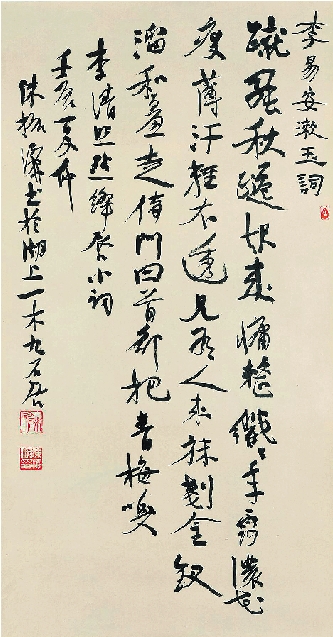 李易安漱玉詞
蹴罷秋遷起來慵整纖〻手露濃花
瘦薄汗輕衣透見有人來袜剗金釵
溜和羞走倚門回首卻把青梅嗅
李清照點絳唇小詞
壬辰夏仲
陳振濂書於湖上一木九石居